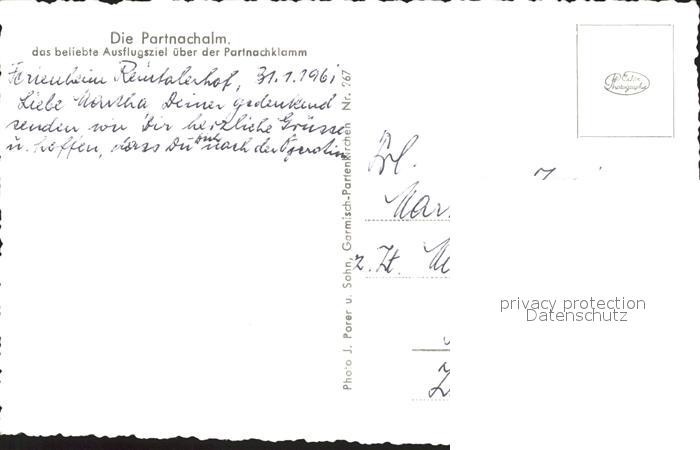 Die Partnachalm,
das beliebte Ausflugsziel über der Partnachklamm
Ferienheim Reintalerhof, 31.1.1961
Liebe Martha Deiner gedenkend
senden wir Dir herzliche Grüsse
u. hoffen, dass Du nach der Operation
Photo J. Porer u. Sohn, Garmisch-Partenkirchen Nr. 267
Echte Photographie
Frl.
Mar
z. Zt. M
privacy protection
Datenschutz